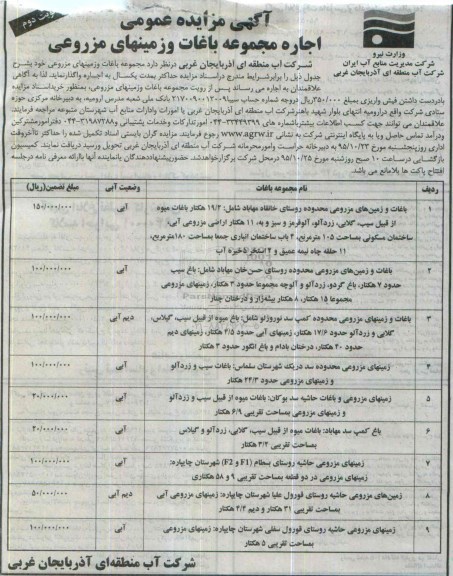 نوبت دوم
آگهی مزایده عمومی
اجاره مجموعه باغات وزمینهای مزروعی
وزارت نیرو
شرکت مدیریت منابع آب ایران
شرکت آب منطقه ای آذربایجان غربی
شرکت آب منطقه ای آذربایجان غربی درنظر دارد مجموعه باغات وزمینهای مزروعی خود بشرح
جدول ذیل را برابرشرایط مندرج دراسناد مزایده حداکثر بمدت یکسال به اجاره واگذارنماید. لذا به آگاهی
علاقمندان به اجاره می رساند پس از رویت مجموعه باغات وزمینهای مزروعی، بمنظور خریداسناد مزایده
بادردست داشتن فیش واریزی بمبلغ ۳۵۰/۰۰۰ ریال دروجه شماره حساب سیبا ۲۱۷۰۰۹۰۰۱۲۰۰۹ بانک ملی شعبه مدرس ارومیه، به دبیرخانه مرکزی حوزه
ستادی شرکت واقع درارومیه انتهای بلوار شهید باهنرشرکت آب منطقه ای آذربایجان غربی یا امورات وادارات منابع آب شهرستان متبوعه مراجعه فرمایند.
علاقمندان می توانند جهت کسب اطلاعات بیشترباشماره های ۳۲۴۴۹۳۹۹-۰۴۴ امورتدارکات وخدمات پشتیبانی و ۳۱۹۸۷۲۸۸-۰۴۴ دفترامورمشترکین
ودرآمد تماس حاصل ویا به پایگاه اینترنتی شرکت به نشانی www.agrw.ir رجوع فرمایند. مزایده گران بایستی اسناد تکمیل شده را حداکثر تاآخروقت
اداری روزپنجشنبه مورخ ۹۵/۱۰/۲۳ به دبیرخانه حراست وامورمحرمانه شرکت آب منطقه ای آذربایجان غربی تحویل ورسید دریافت نمایند. کمیسیون
بازگشایی درساعت ۱۰ صبح روزشنبه مورخ ۹۵/۱۰/۲۵ درمحل شرکت برگزارخواهدشد. حضورپیشنهاددهندگان یانماینده آنها باارائه معرفی نامه درجلسه
افتتاح پاکت ها بلامانع می باشد.
ردیف نام مجموعه باغات وضعیت آبی مبلغ تضمین(ریال)
۱ باغات و زمین‌های مزروعی محدوده روستای خانقاه مهاباد شامل: ۱۹/۲ هکتار باغات میوه آبی ۱۵۰/۰۰۰/۰۰۰
از قبیل سیب، گلابی، زردآلو، آلوقرمز و سبز و به، ۱۱ هکتار اراضی مزروعی آبی،
ساختمان مسکونی بمساحت ۱۰۵ مترمربع، ۴ باب ساختمان انباری جمعا بمساحت ۱۸۰مترمربع،
۱۱ حلقه چاه نیمه عمیق و ۴ استخر ذخیره آب
۲ باغات و زمینهای مزروعی محدوده روستای حسن‌خان مهاباد شامل: باغ سیب آبی ۱۰۰/۰۰۰/۰۰۰
حدود ۷ هکتار، باغ گردو، زردآلو و آلوچه مجموعا حدود ۳ هکتار، زمینهای مزروعی
مجموعا ۱۵ هکتار، ۸ هکتار بیشه‌زار و درختان چنار
۳ باغات و زمینهای مزروعی محدوده کمپ سد نوروزلو شامل: باغ میوه از قبیل سیب، گیلاس، دیم آبی ۱۰۰/۰۰۰/۰۰۰
گلابی و زردآلو حدود ۱۷/۶ هکتار، زمینهای آبی حدود ۴/۵ هکتار، زمینهای دیم
حدود ۲۰ هکتار، درختان بادام و باغ انگور حدود ۳ هکتار
۴ زمینهای مزروعی محدوده سد دریک شهرستان سلماس: باغات سیب و زردآلو آبی ۱۰۰/۰۰۰/۰۰۰
و زمینهای مزروعی حدود ۲۴/۳ هکتار
۵ زمینهای مزروعی و باغات حاشیه سد بوکان: باغات میوه از قبیل سیب و زردآلو آبی ۲۰/۰۰۰/۰۰۰
و زمینهای مزروعی بمساحت تقریبی ۶/۹ هکتار
۶ باغ کمپ سد مهاباد: باغات میوه از قبیل سیب، گلابی، زردآلو و گیلاس آبی ۲۰/۰۰۰/۰۰۰
بمساحت تقریبی ۴/۲ هکتار
۷ زمینهای مزروعی حاشیه روستای بسطام (F1 و F2) شهرستان چایپاره: آبی ۱۰۰/۰۰۰/۰۰۰
زمینهای مزروعی در دو قطعه بمساحت تقریبی ۹ و ۵۸ هکتاری
۸ زمین‌های مزروعی حاشیه روستای قورول علیا شهرستان چایپاره: زمینهای مزروعی آبی دیم آبی ۵۰/۰۰۰/۰۰۰
بمساحت تقریبی ۳۱ هکتار و دیم ۴/۲ هکتار
۹ زمینهای مزروعی حاشیه روستای قورول سفلی شهرستان چایپاره: زمینهای مزروعی آبی ۱۰۰/۰۰۰/۰۰۰
بمساحت تقریبی ۵ هکتار
شرکت آب منطقه‌ای آذربایجان غربی